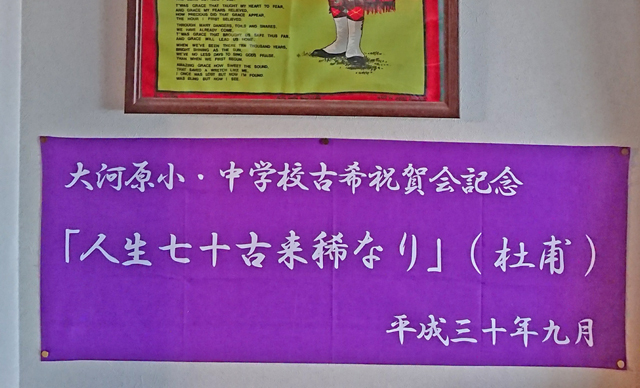 'TWAS GRACE THAT TAUGHT MY HEART TO FEAR,
AND GRACE MY FEARS RELIEVED,
HOW PRECIOUS DID THAT GRACE APPEAR,
THE HOUR I FIRST BELIEVED.
THROUGH MANY DANGERS, TOILS AND SNARES,
WE HAVE ALREADY COME.
'TWAS GRACE THAT BROUGHT US SAFE THUS FAR,
AND GRACE WILL LEAD US HOME.
WHEN WE'VE BEEN THERE TEN THOUSAND YEARS,
BRIGHT SHINING AS THE SUN,
WE'VE NO LESS DAYS TO SING GODS PRAISE,
THAN WHEN WE FIRST BEGUN.
AMAZING GRACE HOW SWEET THE SOUND,
THAT SAVED A WRETCH LIKE ME,
I ONCE WAS LOST BUT NOW I'M FOUND
WAS BLIND, BUT NOW I SEE.
大河原小・中学校古希祝賀会記念
「人生七十古来稀なり」(杜甫)
平成三十年九月